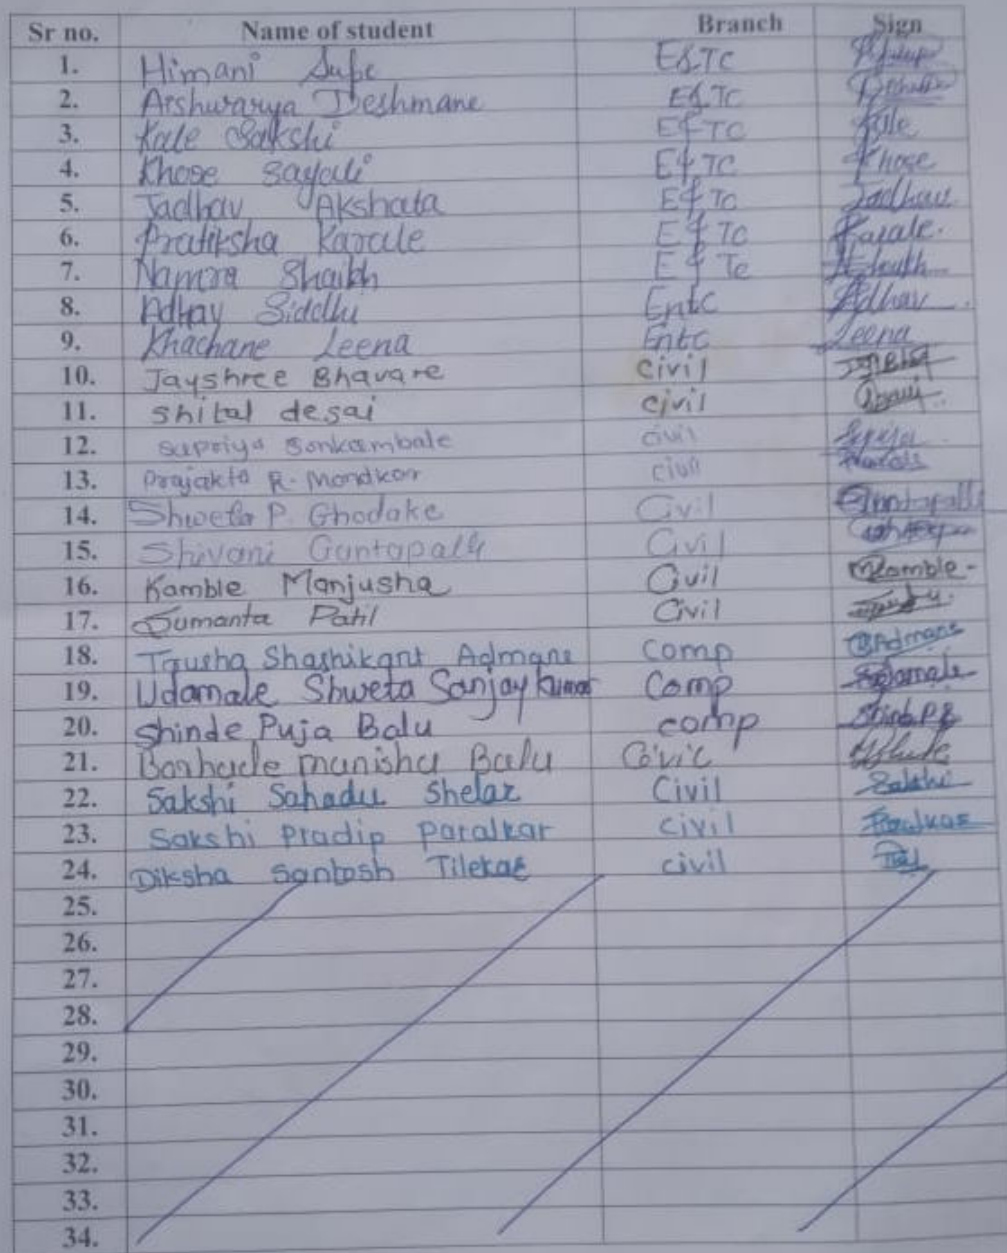 Sr no. Name of student Branch Sign
1. Himani Supe E&TC
2. Aishwarya Deshmane E&TC
3. Kale Sakshi E&TC Kale
4. Khose Sayali E&TC Khose
5. Jadhav Akshata E&TC Jadhav
6. Pratiksha Karale E&TC Karale.
7. Namra Shaikh E&TC
8. Adhav Siddhi Entc Adhav
9. Khachane Leena Entc Leena
10. Jayshree Bhavare Civil
11. Shital desai civil
12. Supriya Sonkambale civil
13. Prajakta R. Mondkar civil
14. Shweta P. Ghodake Civil
15. Shivani Gantapalli Civil
16. Kamble Manjusha Civil Kamble
17. Sumanta Patil Civil
18. Shashikant Admane Comp Admane
19. Udamale Shweta Sanjaykumar Comp
20. Shinde Puja Balu comp
21. Barhade manisha Balu Civil
22. Sakshi Sahadu Shelar Civil Sakshi
23. Sakshi Pradip Paralkar civil
24. Diksha Santosh Tilekar civil
25.
26.
27.
28.
29.
30.
31.
32.
33.
34.